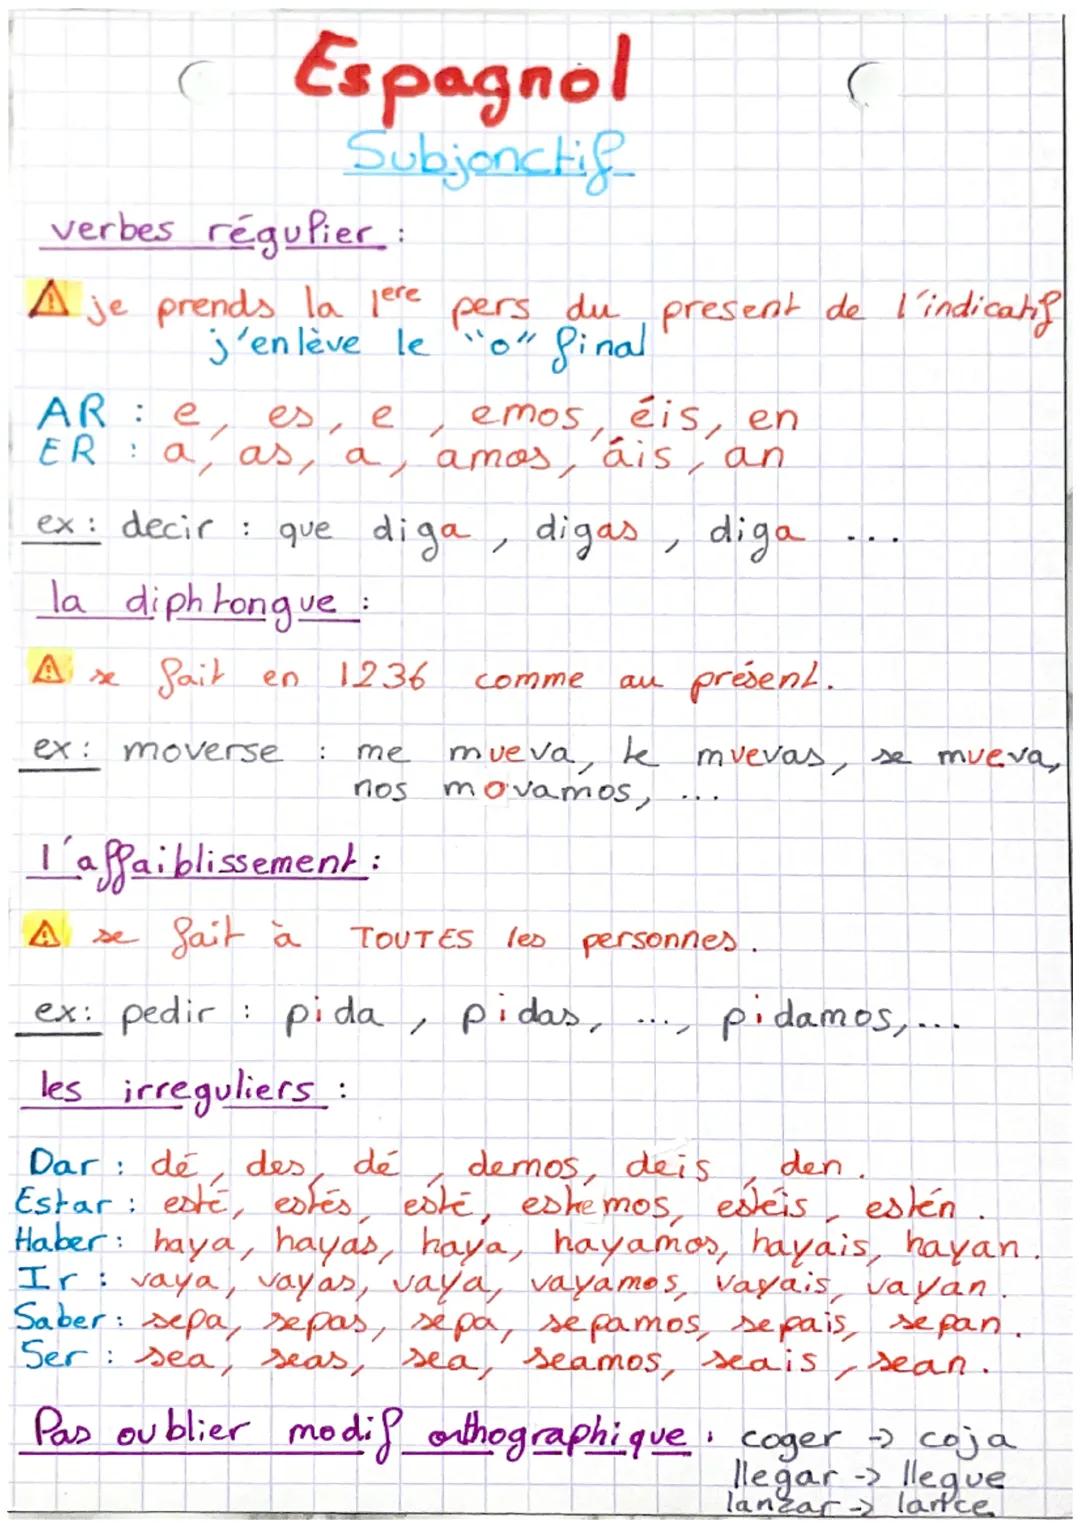 Espagnol
Subjonctif
verbes régulier :
⚠ je prends la 1ere pers du present de l'indicatif
j'enlève le "o" final
AR : e, es, e, emos, éis, en
ER : a, as, a, amos, áis, an
ex : decir : que diga, digas, diga ...
la diphtongue :
⚠ se fait en 1236 comme au présent.
ex : moverse : me mueva, te muevas, se mueva,
nos movamos, ...
l'affaiblissement :
⚠ se fait à TOUTES les personnes.
ex : pedir : pida, pidas, ..., pidamos, ...
les irreguliers :
Dar : dé, des, dé, demos, deis, den.
Estar : esté, estés, esté, estemos, estéis, estén.
Haber : haya, hayas, haya, hayamos, hayais, hayan.
Ir : vaya, vayas, vaya, vayamos, vayais, vayan.
Saber : sepa, sepas, sepa, sepamos, sepais, sepan.
Ser : sea, seas, sea, seamos, seais, sean.
Pas oublier modif orthographique : coger -> coja
llegar -> llegue
lanzar -> lance